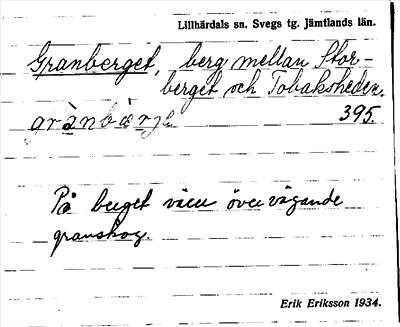 Lillhärdals sn. Svegs tg. Jämtlands län.
Granberget, berg mellan Stor-
berget och Tobaksheden.
grànbærje 395.
På berget växer övervägande
granskog.
Erik Eriksson 1934.